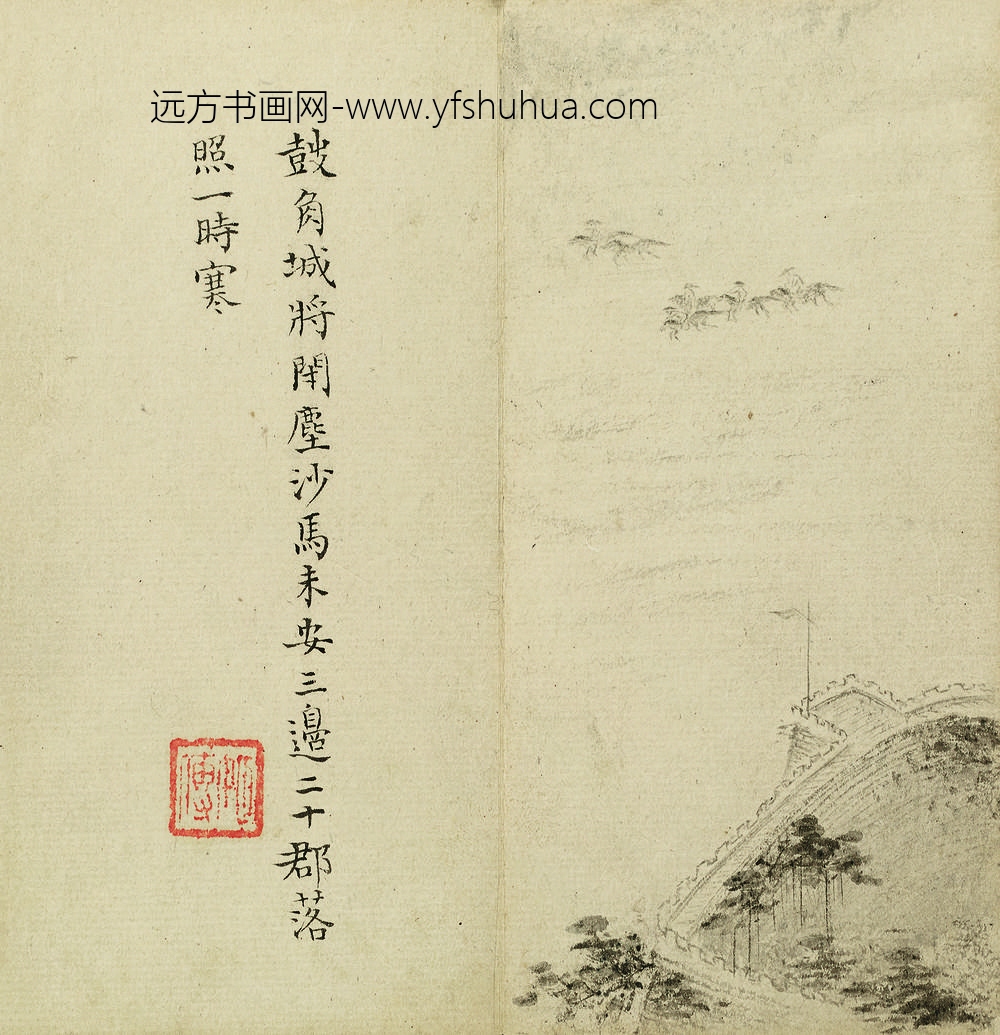 远方书画网-www.yfshuhua.com
鼓角城將閉塵沙馬未安三邊二十郡落
照一時寒